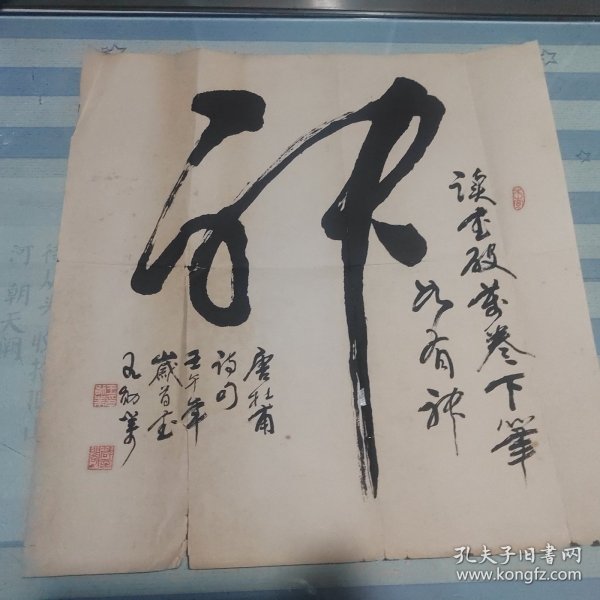 神
读书破万卷下筆
如有神
唐杜甫
诗句
壬午年
歲首书
孔夫子旧书网
www.kongfz.com